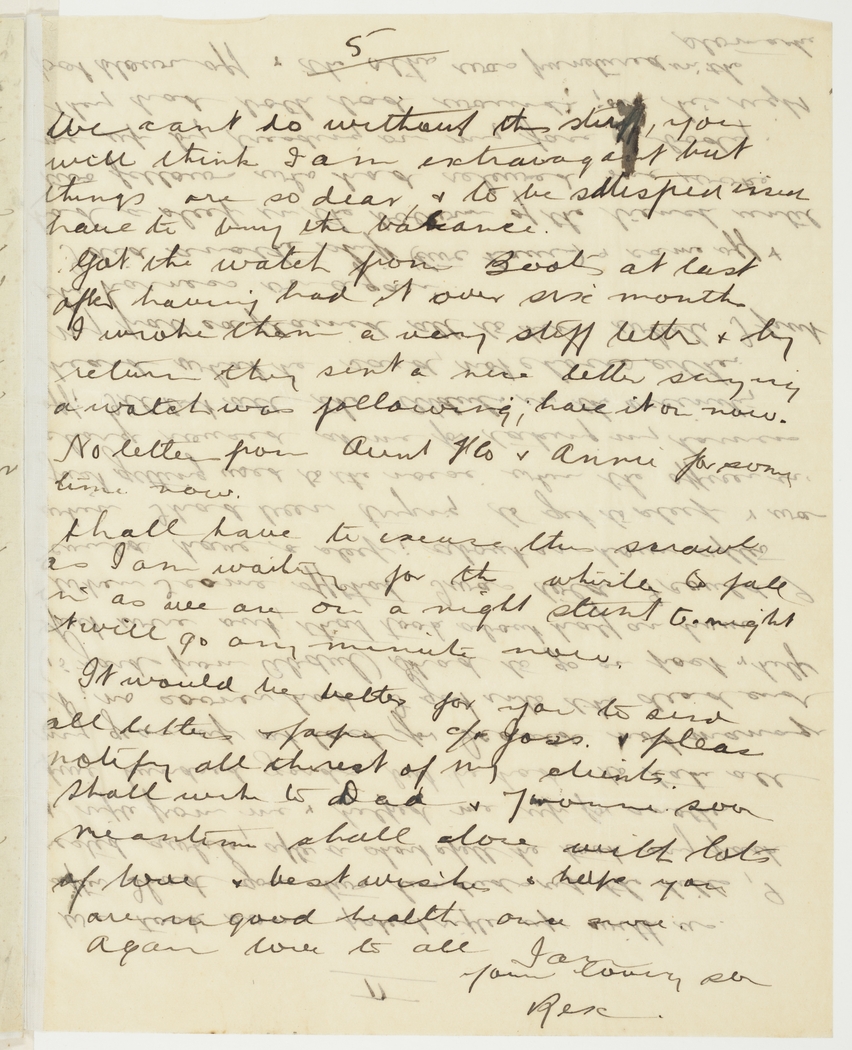 5
We cant do without the stuff, you
will think I am extravagant but
things are so dear, & to be satisfied
have to buy the balance.
Got the watch from Boots at last
after having had it over six months
I wrote them a very stiff letter & by
return they sent a nice letter saying
a watch was following; have it on now.
No letter from Aunt Flo & Annie for some
time now.
Shall have to excuse this scrawl
as I am waiting for the whistle to fall
in as we are on a night stunt to-night
& will go any minute now.
It would be better for you to send
all letters & paper c/o & please
notify all the rest of my clients.
Shall write to Dad & soon
meantime shall close with lots
of love & best wishes & hope you
are in good health
Again love to all I am
your loving son
Rex.